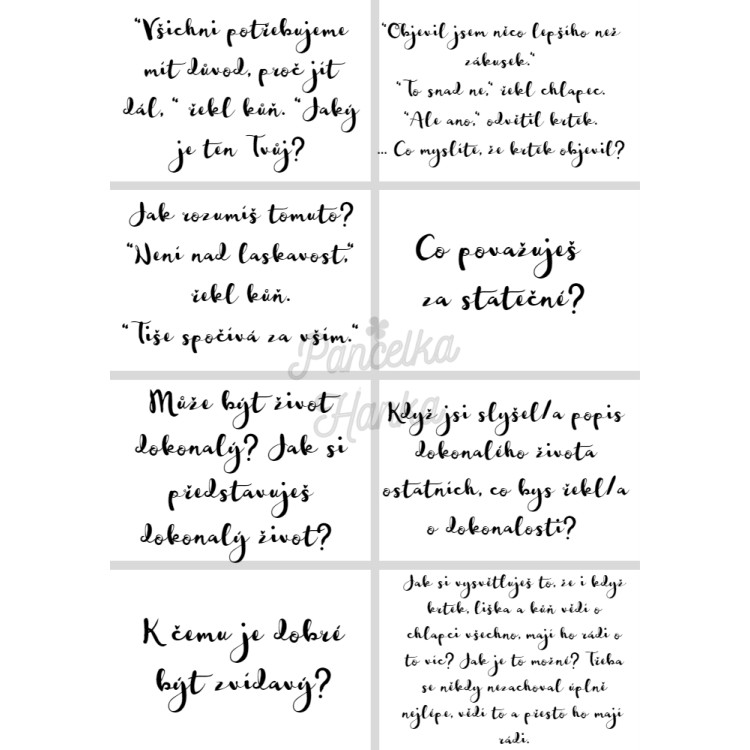 "Všichni potřebujeme
mít důvod, proč jít
dál, " řekl kůň. "Jaký
je ten Tvůj?
"Objevil jsem něco lepšího než
zákusek."
"To snad ne," řekl chlapec.
"Ale ano," odvětil krtek.
... Co myslíte, že krtek objevil?
Jak rozumíš tomuto?
"Není nad laskavost,"
řekl kůň.
"Tiše spočívá za vším."
Co považuješ
za statečné?
Pančelka
Hanka
Může být život
dokonalý? Jak si
představuješ
dokonalý život?
Když jsi slyšel/a popis
dokonalého života
ostatních, co bys řekl/a
o dokonalosti?
K čemu je dobré
být zvídavý?
Jak si vysvětluješ to, že i když
krtek, liška a kůň vědí o
chlapci všechno, mají ho rádi o
to víc? Jak je to možné? Třeba
se někdy nezachoval úplně
nejlépe, vědí to a přesto ho mají
rádi.